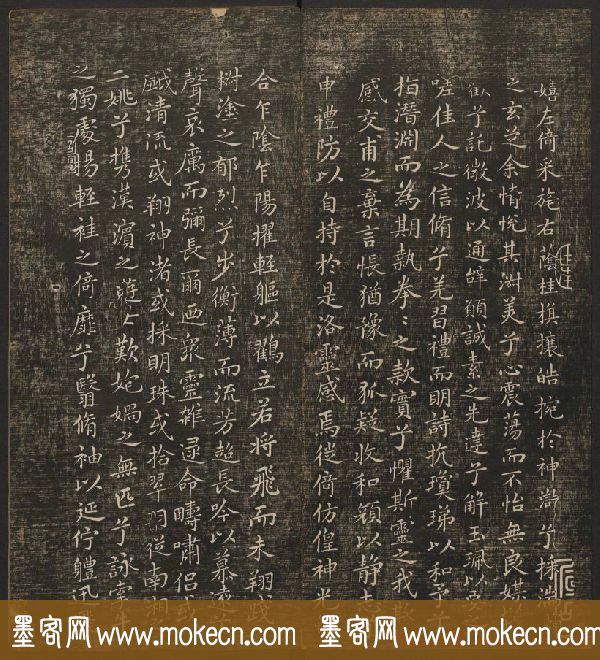 嬉左倚采旄右蔭桂旗攘皓捥於神滸兮採湍
之玄芝余情悅其淑美兮心震蕩而不怡無良媒
懽兮託微波以通辭願誠素之先達兮解玉珮以
嗟佳人之信脩兮羌習禮而明詩抗瓊珶以和予兮
指潛淵而為期執拳〻之款實兮懼斯靈之我欺
感交甫之棄言悵猶豫而狐疑收和顏以静志
申禮防以自持於是洛靈感焉徙倚仿偟神光
合乍陰乍陽擢輕軀以鶴立若將飛而未翔踐
椒塗之郁烈兮步衡薄而流芳超長吟以慕遠
聲哀厲而彌長爾迺眾靈雜遝命疇嘯侶或
戲清流或翔神渚或採明珠或拾翠羽從南湘
二姚兮攜漢濱之遊女歎炮媧之無匹兮詠牽
之獨處揚輕袿之倚靡兮翳脩袖以延佇體迅
墨客网 www.mokecn.com 墨客网 www.mokecn.com